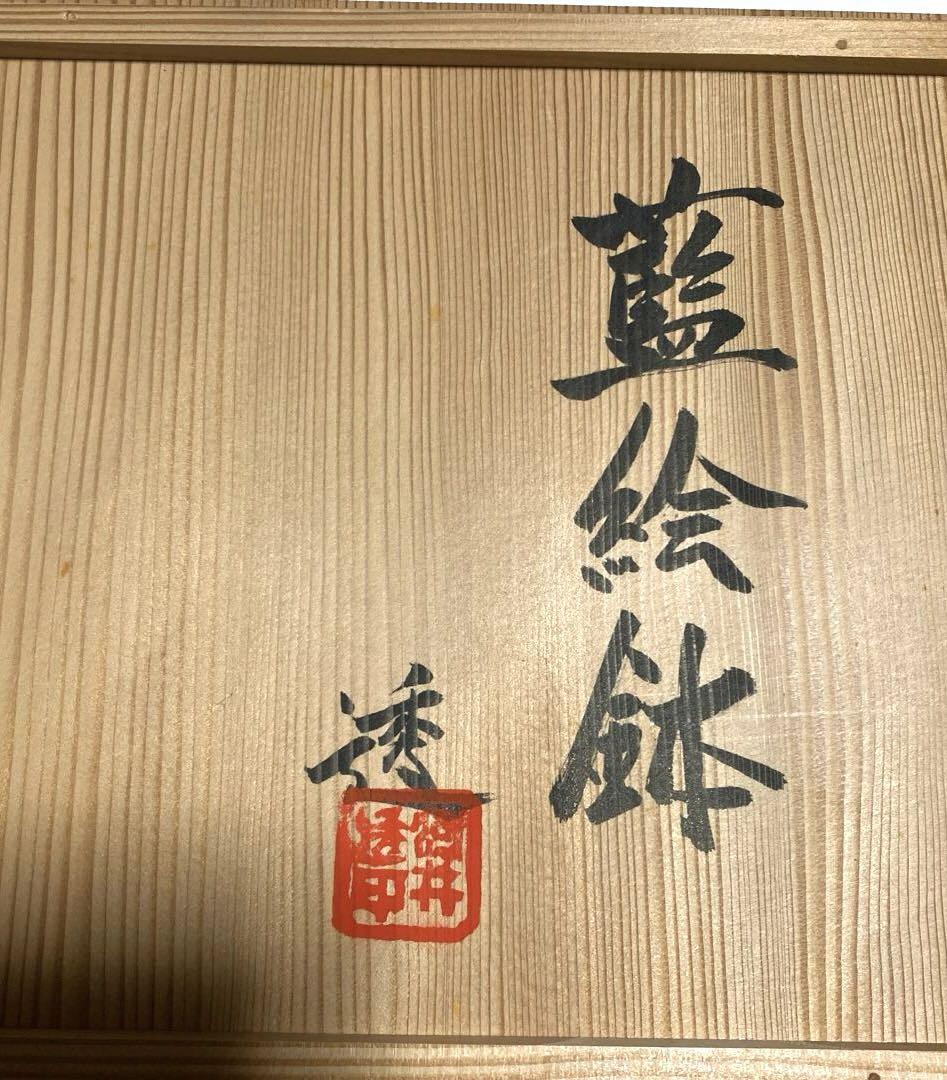 藍絵鉢
透